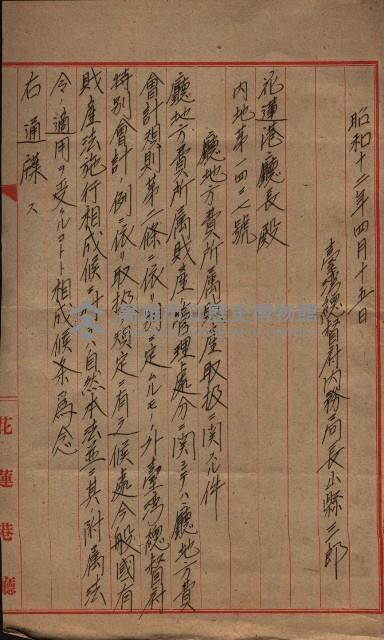 昭和十二年四月十五日
臺灣總督府內務局長山縣三郎
花蓮港廳長殿
內地第一四二號
廳地方費所属財產取扱ニ関スル件
廳地方費所属財產ノ管理處分ニ関シテハ廳地方費
會計規則第二條ニ依リ別ニ定ムルモノノ外臺灣總督府
特別會計ノ例ニ依リ取扱規定ニ有之候處今般國有
財產法施行相成候ニ付自然本法並ニ其ノ附属法
令ノ適用ヲ受クルコトト相成候条為念
右通牒ス
花蓮港廳